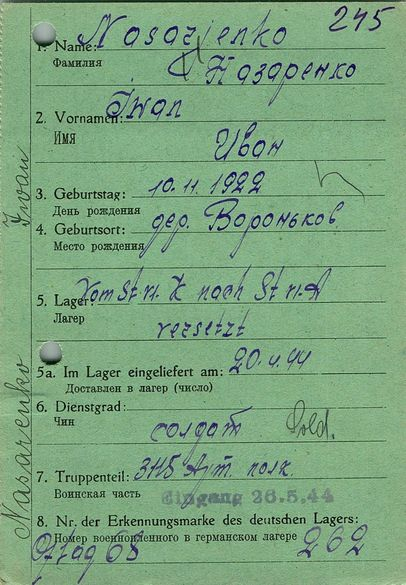 245
1. Name: Nasarjenko
Фамилия Назаренко
2. Vornamen: Iwan
Имя Иван
3. Geburtstag: 10.11.1922
День рождения
4. Geburtsort: дер. Вороньков
Место рождения
5. Lager: Vom St n. K nach St n. A
Лагер versetzt
5a. Im Lager eingeliefert am: 20.4.44
Доставлен в лагер (число)
6. Dienstgrad:
Чин солдат Sold.
7. Truppenteil: Арт. полк.
Воинская часть Eingang 26.5.44
8. Nr. der Erkennungsmarke des deutschen Lagers:
Номер военнопленного в германском лагере 262
Oflag 68
Nasarenko Iwan